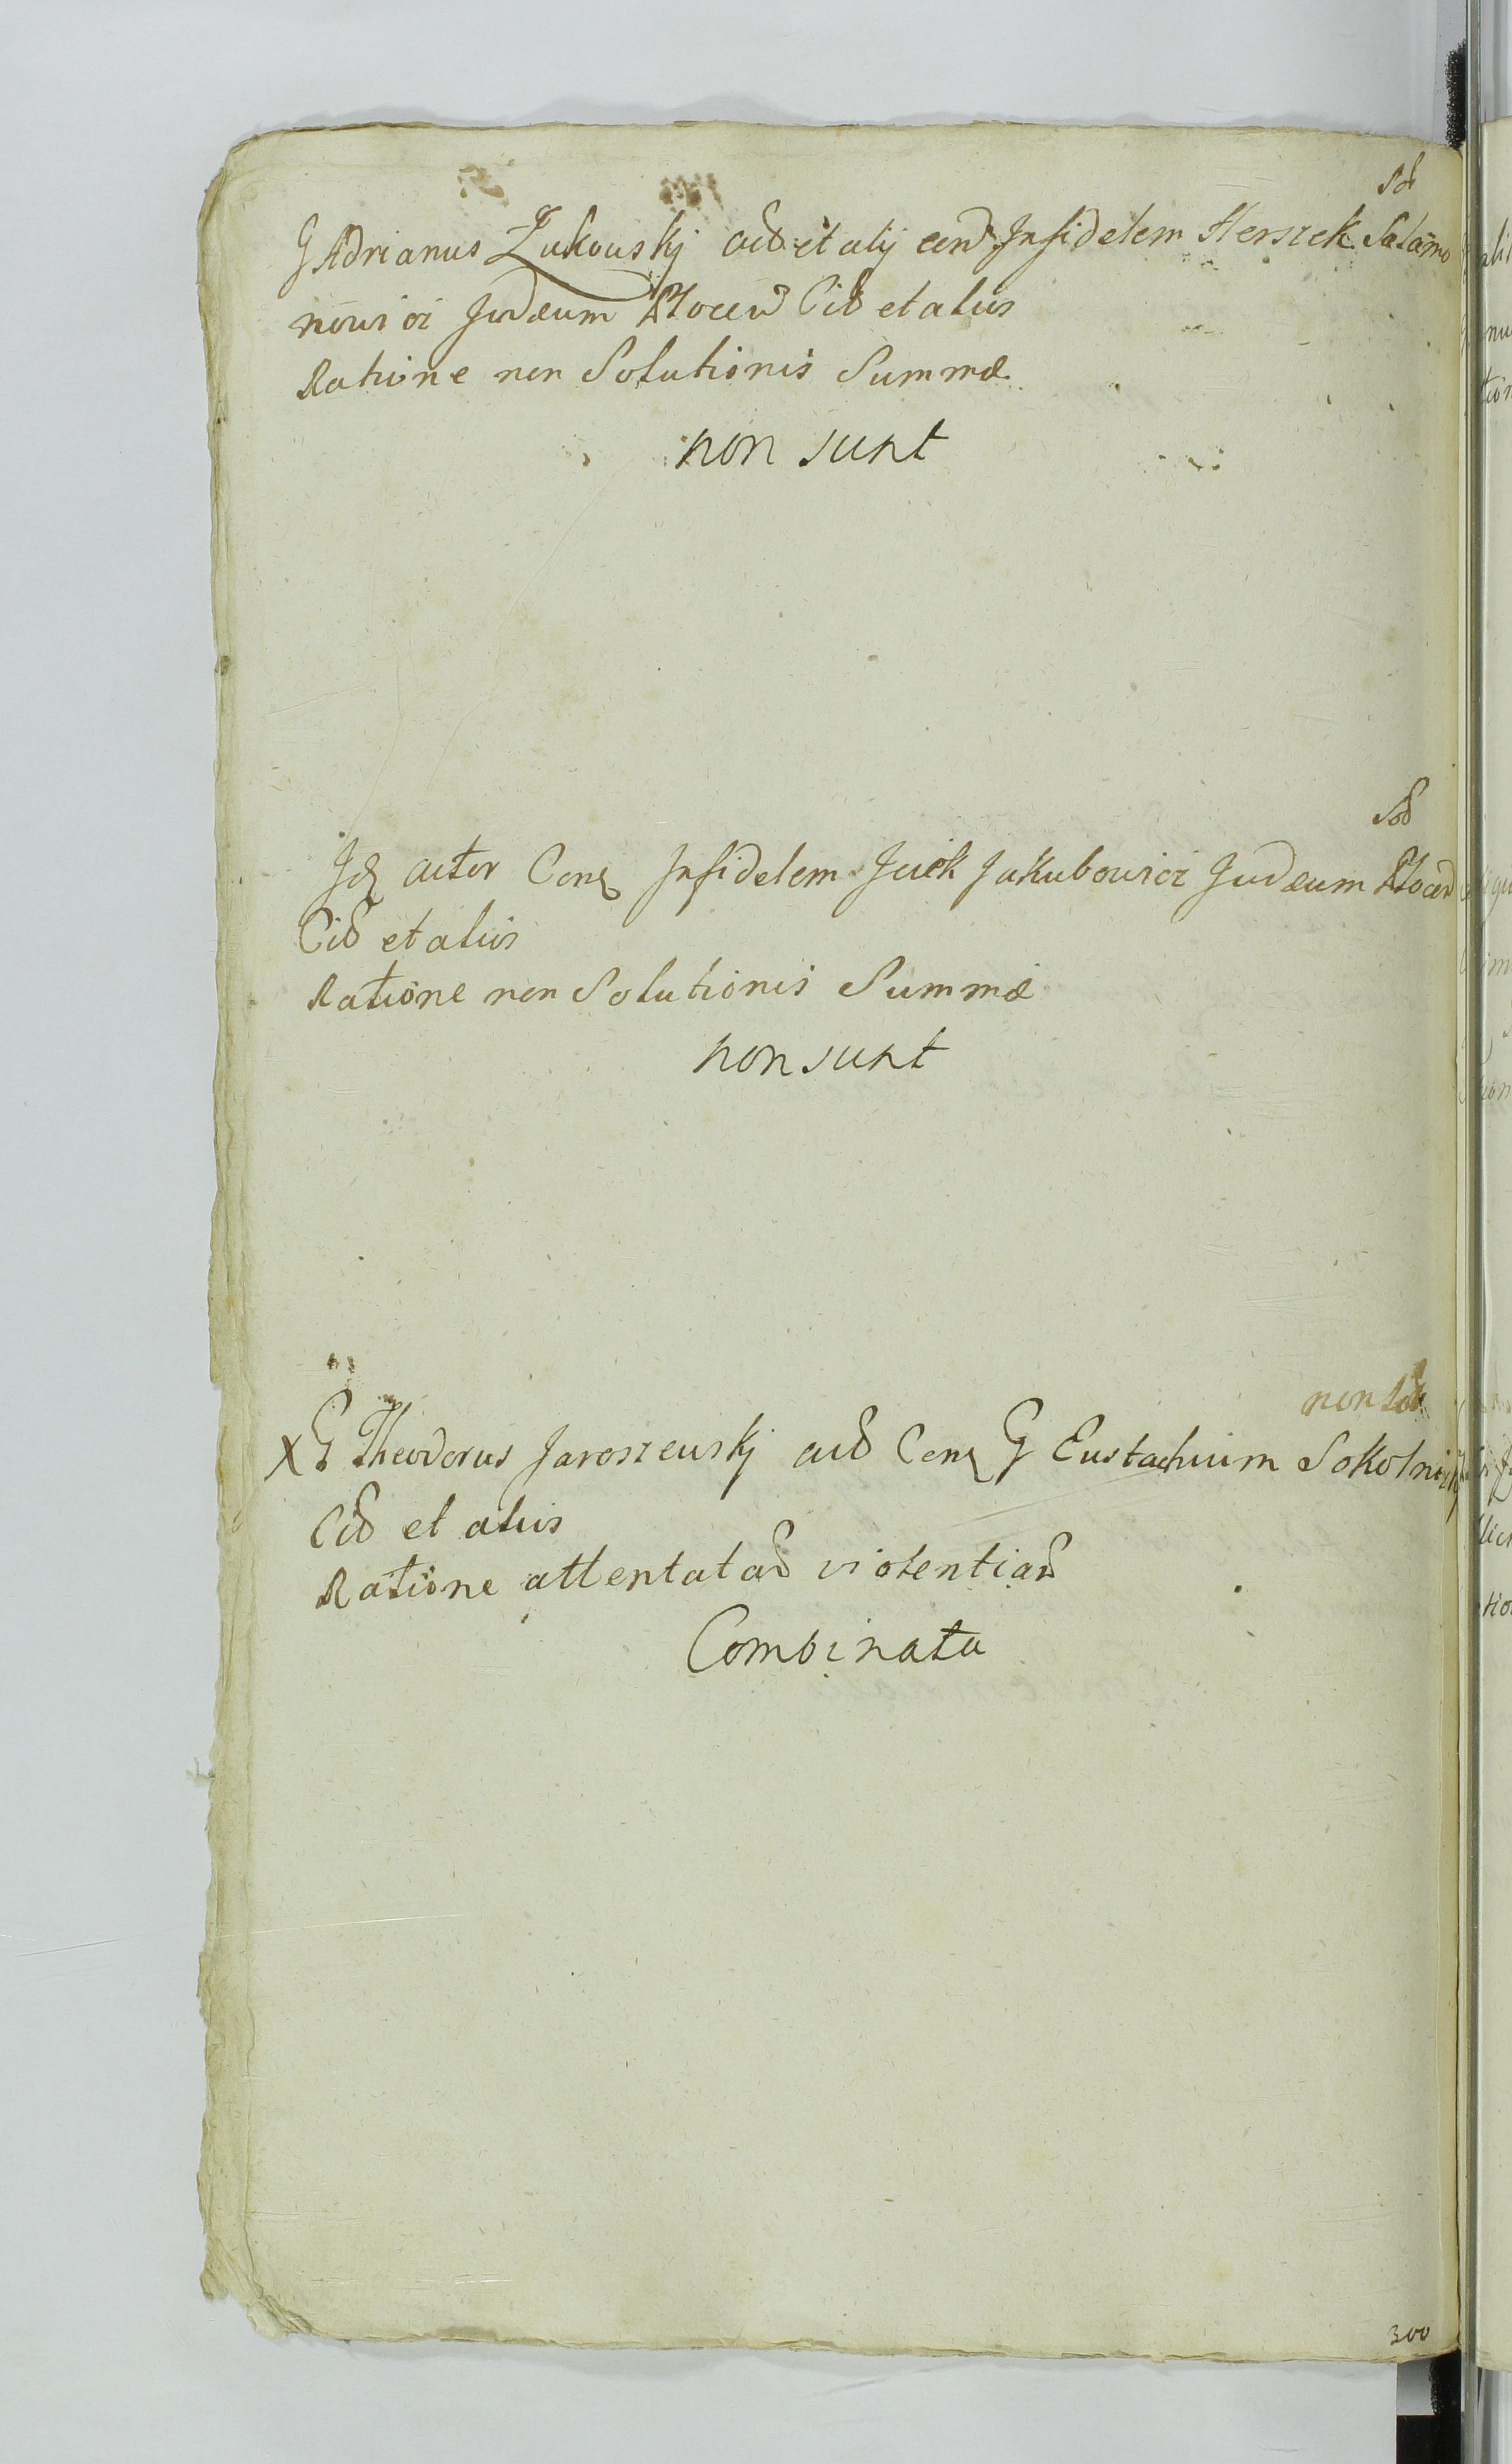 Sod
G Adrianus Żukowskj acð et alij conð Infidelem Herszek Salamo
nowicz Judæum Płocen Cið et alus
Ratione non Solutionis Summæ
non sunt
Sod
Idq actor Conq Infidelem Jcick Jakubowicz Judæum Płocen
Cið et alus
Ratione non Solutionis Summæ
non sunt
non Sod
X G Theodorus Jaroszewskj acð Conq G Eustachium Sokolnick
Cið et alus
Ratione attentatað violentiað
Combinata
300